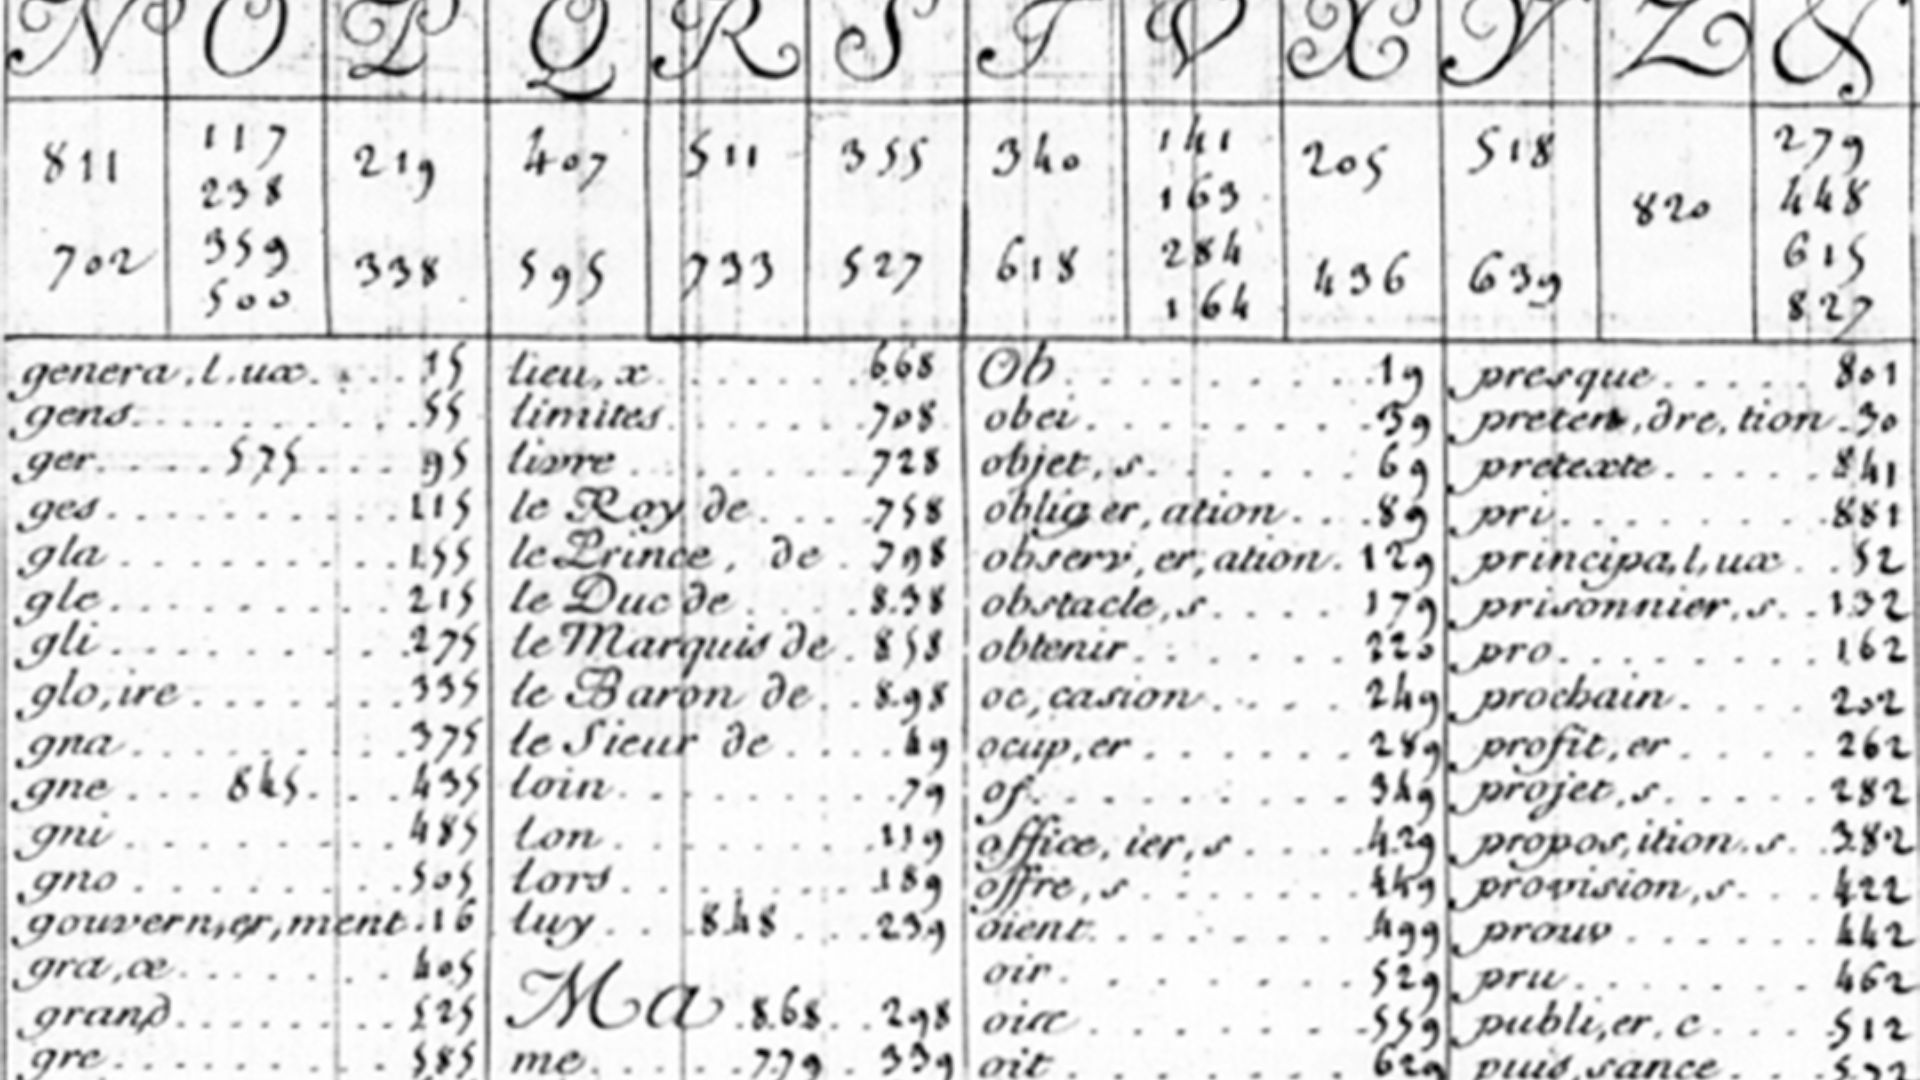 N O P Q R S T V X Y Z &
811 117 219 407 511 355 340 141 205 518 820 279
238 163 448
702 359 338 595 733 527 618 284 436 639 615
500 164 827
genera,l.ux. . . . 15
gens. . . . 55
ger. . . . 575 . . . 95
ges. . . . 115
gla. . . . 155
gle. . . . 215
gli. . . . 275
glo,ire. . . . 335
gna. . . . 375
gne. . . 845. . . 435
gni. . . . 485
gno. . . . 505
gouvern,er,ment. 16
gra,ce. . . . 405
grand. . . . 525
gre. . . . 585
lieu,x. . . . 668
limites. . . . 708
livre. . . . 728
le Roy de. . . . 758
le Prince, de . 798
le Duc de. . . . 838
le Marquis de . 858
le Baron de. . . 898
le Sieur de. . . . 49
loin. . . . 79
lon. . . . 119
lors. . . . 189
luy. . . 848 . . . 239
Ma . 868. . 298
me. . . . 779 . 339
Ob. . . . 19
obei. . . . 39
objet,s. . . . 69
oblig er,ation. . . 89
observ,er,ation. 129
obstacle,s. . . . 179
obtenir. . . . 220
oc,casion. . . . 249
ocup,er. . . . 289
of. . . . 349
office, ier,s. . . . 429
offre,s. . . . 449
oient. . . . 499
oir. . . . 529
oise. . . . 559
oit. . . . 629
presque. . . . 801
preten,dre,tion. 30
pretexte. . . . 841
pri. . . . 881
principa,l,ux. . 52
prisonnier,s. . 132
pro. . . . 162
prochain. . . . 202
profit,er. . . . 262
projet,s. . . . 282
propos,ition.s. . 382
provision,s. . . 422
prouv. . . . 442
pru. . . . 462
publi,er.c. . . 512
puis,sance. . . .